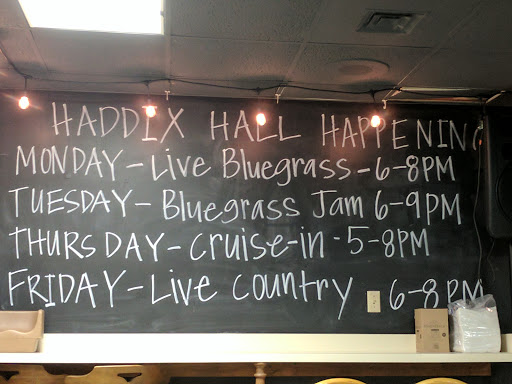 HADDIX HALL HAPPENING
MONDAY - Live Bluegrass - 6-8PM
TUESDAY - Bluegrass Jam 6-9PM
THURSDAY - cruise-in - 5-8PM
FRIDAY - Live country 6-8PM